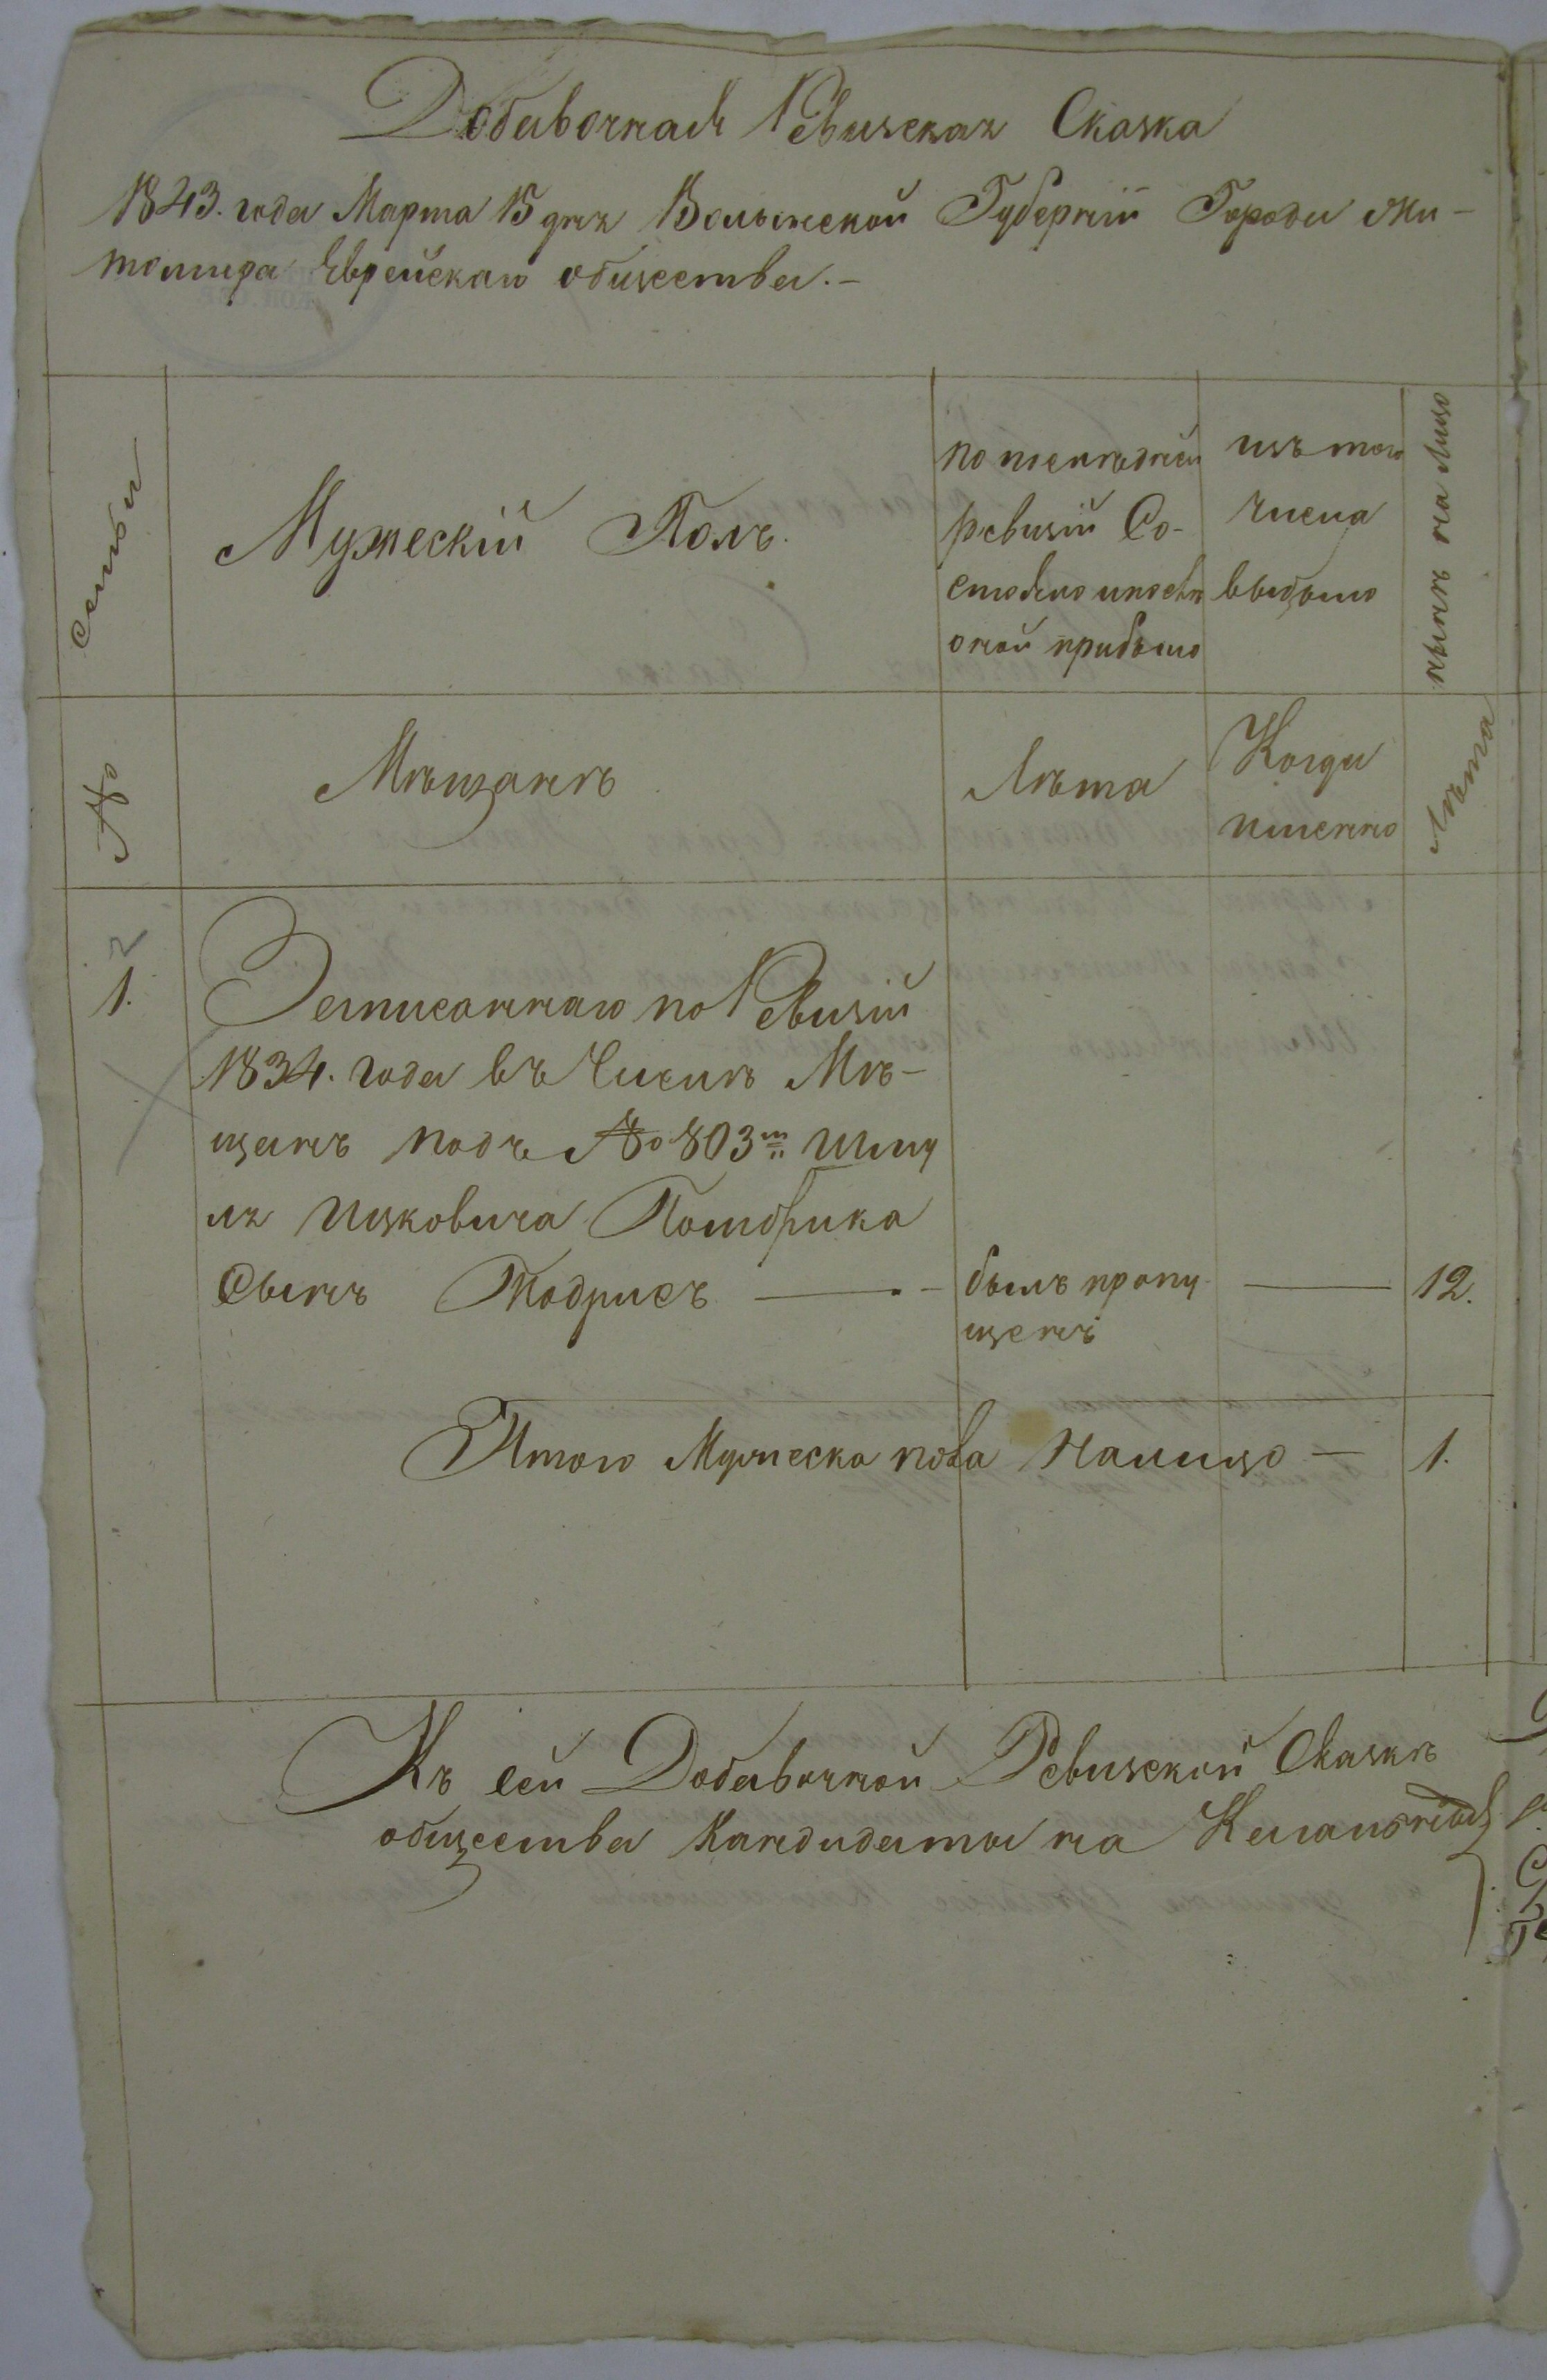 Добавочная Ревизская Сказка
1843. года Марта 15 дня Волынской Губерніи Города Жи-
томира Еврейскаго общества.-
Семьи
Мужескій Полъ.
по последней
ревизіи Со-
стояло и после
оной прибыло
изъ того
числа
выбыло
нынѣ на лицо
№
Мѣщанѣ
Лѣта
Когда
именно
Лѣта
2
1.
Записаннаго по Ревизіи
1834. года въ Числѣ Мѣ-
щанъ подъ № 803м Шму
ля Ицковича
Сынъ Тодрисъ
былъ пропу
щенъ
12.
Итого Мужеска пола На лицо —
1.
Къ сей Добавочной Ревизской Сказкѣ
общества Кандидаты на